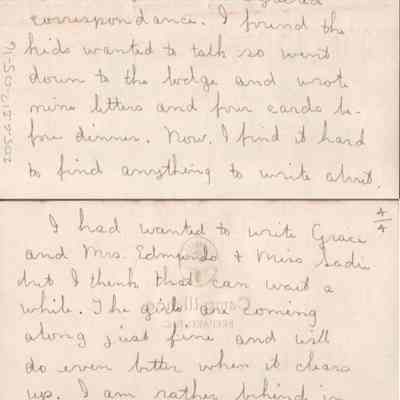 correspondance. I found the
kids wanted to talk so went
down to the lodge and wrote
nine letters and four cards be-
fore dinner. Now, I find it hard
to find anything to write about.
4/4
I had wanted to write Grace
and Mrs. Edmunds + Miss Sadie
but I think that can wait a
while. The girls are coming
along just fine and will
do even better when it clears
up. I am rather behind in